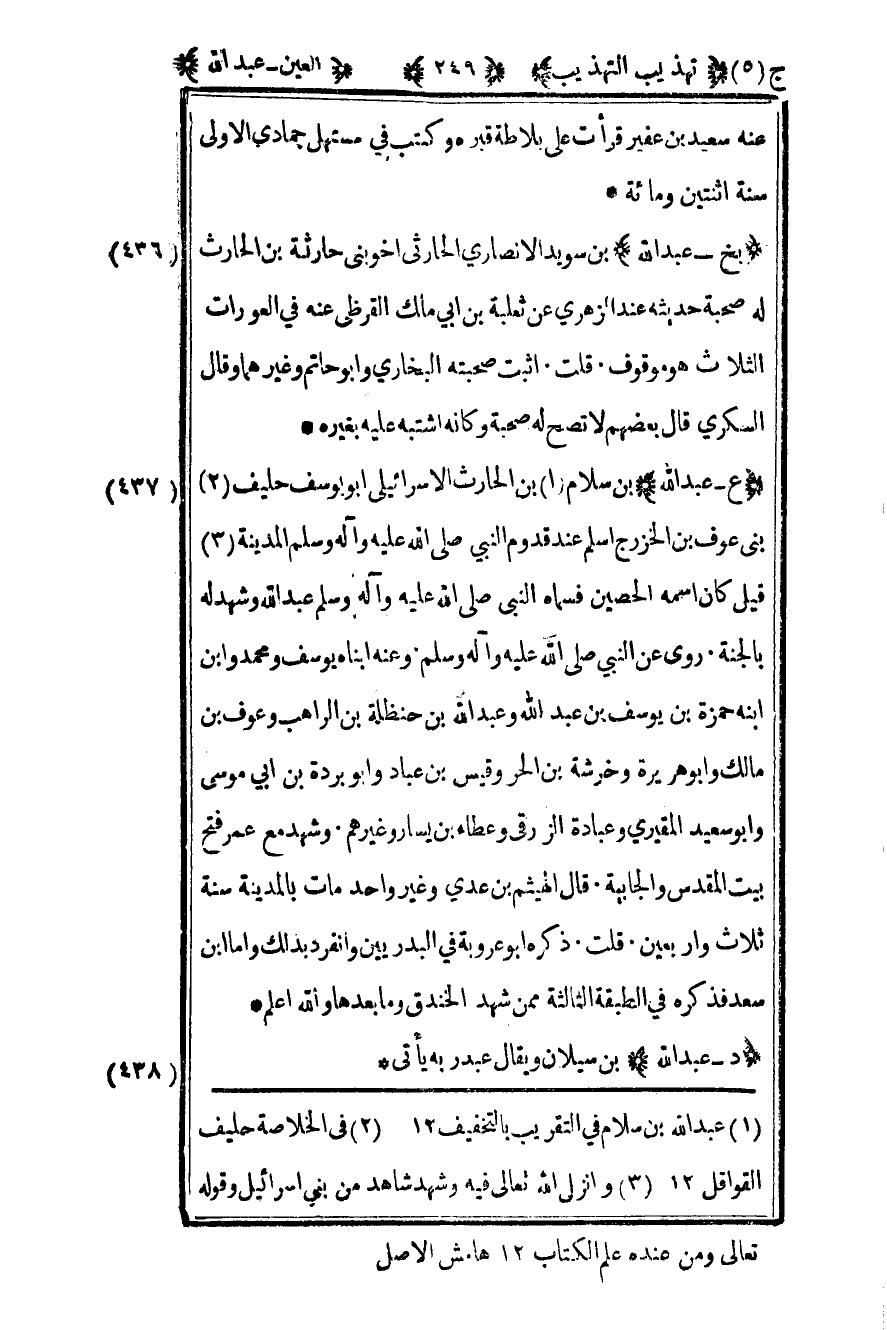 ج (٥) ﴿ تهذيب التهذيب ﴾ ﴿ ٢٤٩ ﴾ ﴿ العين ـ عبدالله ﴾
عنه سعيد بن عفير قرأت على بلاطة قبره وكتب في مستهل جمادي الاولى
سنة اثنتين ومائة *
﴿ بخ ـ عبدالله ﴾ بن سويد الانصاري الحارثى اخو بنى حارثة بن الحارث (٤٣٦)
له صحبة حديثه عند الزهري عن ثعلبة بن ابي مالك القرظى عنه في العورات
الثلاث هو موقوف · قلت · اثبت صحبته البخاري وابو حاتم وغيرهما وقال
السكري قال بعضهم لا تصح له صحبة وكانه اشتبه عليه بغيره *
﴿ ع ـ عبدالله ﴾ بن سلام (١) بن الحارث الاسرائيلى ابو يوسف حليف (٢) (٤٣٧)
بنى عوف بن الخزرج اسلم عند قدوم النبي صلى الله عليه وآله وسلم المدينة (٣)
قيل كان اسمه الحصين فسماه النبى صلى الله عليه وآله وسلم عبدالله وشهد له
بالجنة · روى عن النبي صلى الله عليه وآله وسلم · وعنه ابناه يوسف ومحمد وابن
ابنه حمزة بن يوسف بن عبد الله وعبدالله بن حنظلة بن الراهب وعوف بن
مالك وابو هريرة وخرشة بن الحر وقيس بن عباد وابو بردة بن ابي موسى
وابو سعيد المقبري وعبادة الزرقى وعطاء بن يسار وغيرهم · وشهد مع عمر فتح
بيت المقدس والجابية · قال الهيثم بن عدي وغير واحد مات بالمدينة سنة
ثلاث واربعين · قلت · ذكره ابو عروبة في البدريين وانفرد بذلك واما ابن
سعد فذكره في الطبقة الثالثة ممن شهد الخندق وما بعدها والله اعلم *
﴿ د ـ عبدالله ﴾ بن سيلان ويقال عبد ربه يأتى * (٤٣٨)
(١) عبدالله بن سلام في التقريب بالتخفيف ١٢ (٢) فى الخلاصة حليف
القواقل ١٢ (٣) وانزل الله تعالى فيه وشهد شاهد من بني اسرائيل وقوله
تعالى ومن عنده علم الكتاب ١٢ هامش الاصل